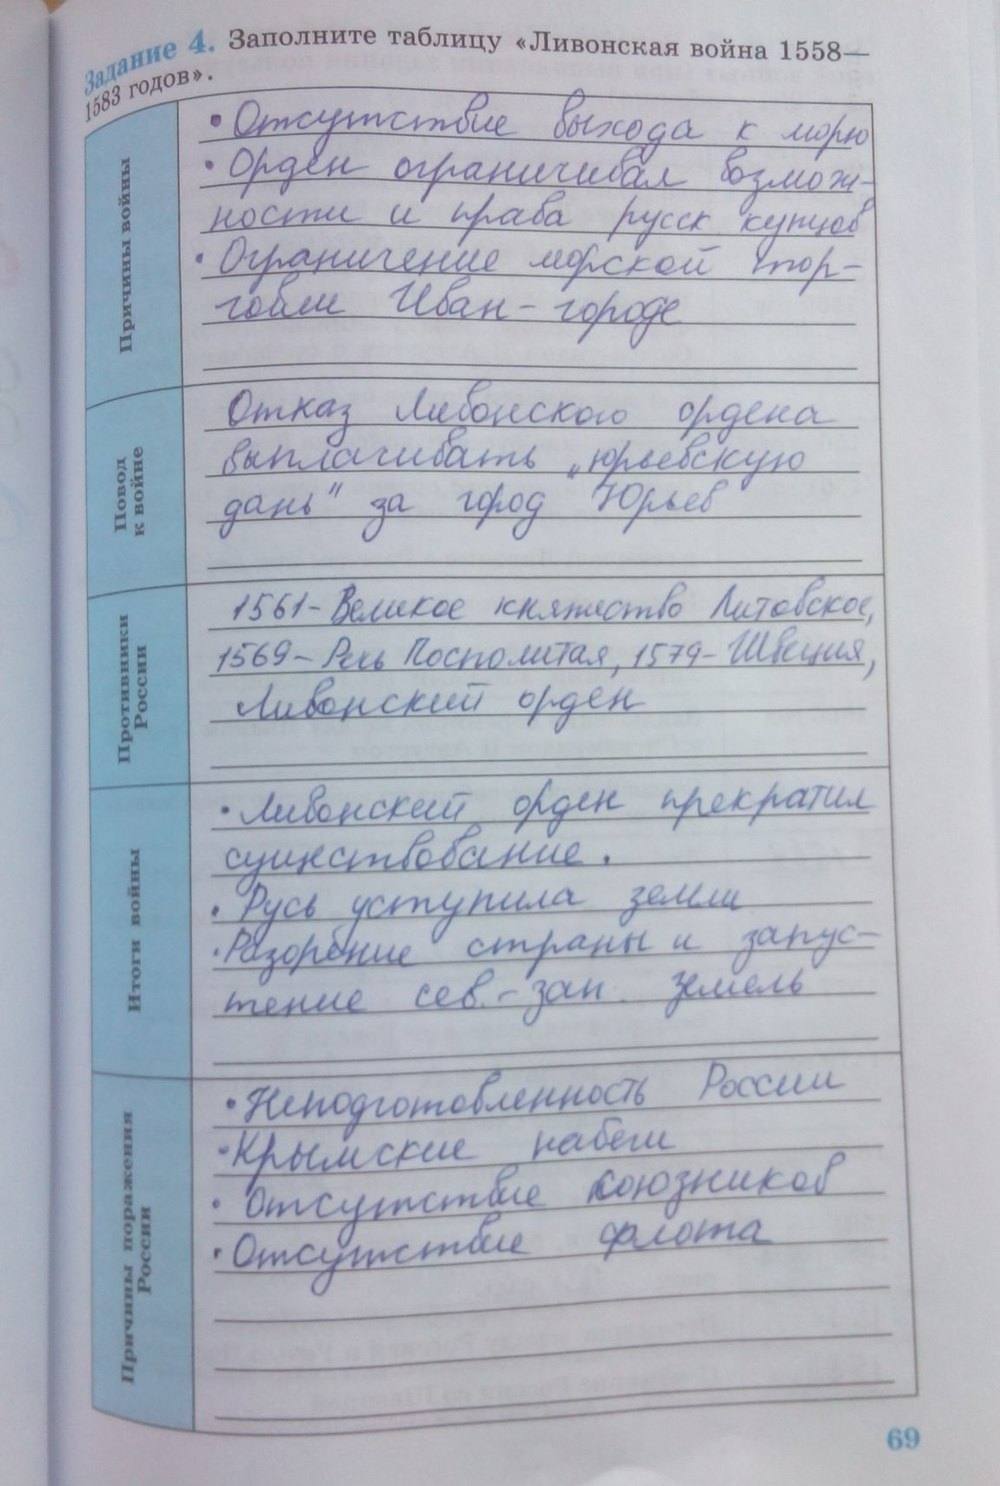 Задание 4. Заполните таблицу «Ливонская война 1558—
1583 годов».
Причины войны
• Отсутствие выхода к морю
• Орден ограничивал возмож-
ности и права русск купцов
• Ограничение морской тор-
говли Иван-городе
Повод
к войне
Отказ Ливонского ордена
выплачивать „юрьевскую
дань" за город Юрьев
Противники
России
1561-Великое княжество Литовское,
1569-Речь Посполитая, 1579-Швеция,
Ливонский орден
Итоги войны
• Ливонский орден прекратил
существование.
• Русь уступила земли
• Разорение страны и запус-
тение сев.-зап. земель
Причины поражения
России
• Неподготовленность России
• Крымские набеги
• Отсутствие союзников
• Отсутствие флота
69